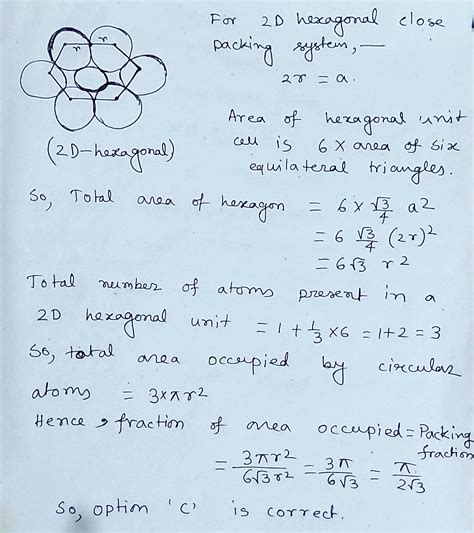 For 2D hexagonal close
packing system,—
2r = a.
r r
(2D-hexagonal)
Area of hexagonal unit
cell is 6 × area of six
equilateral triangles.
So, Total area of hexagon = 6 × √3/4 a2
= 6 √3/4 (2r)²
= 6√3 r2
Total number of atoms present in a
2D hexagonal unit = 1 + 1/3 × 6 = 1+2 = 3
So, total area occupied by circular
atoms = 3×πr²
Hence, fraction of area occupied = Packing fraction
= 3πr²/6√3 r² = 3π/6√3 = π/2√3
So, option 'C' is correct.